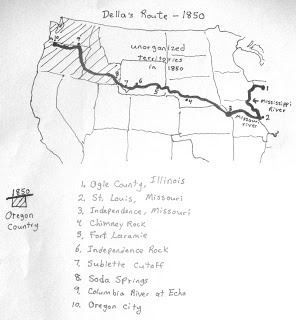 Della's Route - 1850
unorganized
territories
in
1850
10
9
8
7
6
5
4
3
1
2
Mississippi
River
Missouri
River
1850
Oregon
Country
1. Ogle County, Illinois
2. St. Louis, Missouri
3. Independence, Missouri
4. Chimney Rock
5. Fort Laramie
6. Independence Rock
7. Sublette Cutoff
8. Soda Springs
9. Columbia River at Echo
10. Oregon City